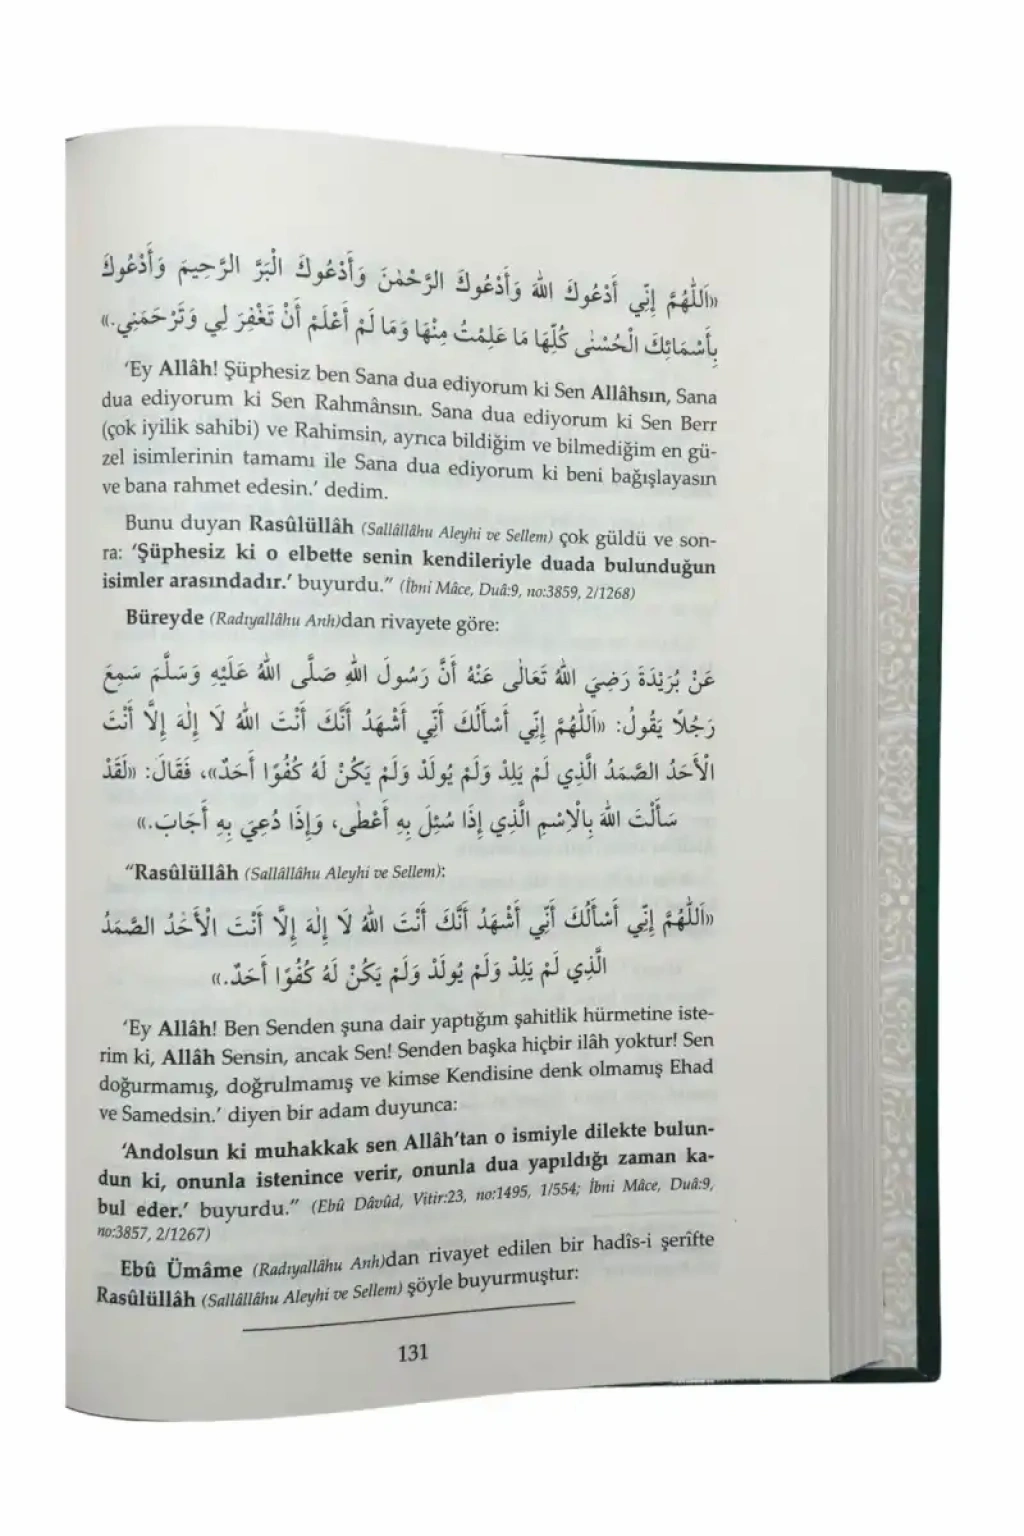 «اَللّٰهُمَّ إِنِّي أَدْعُوكَ اللهَ وَأَدْعُوكَ الرَّحْمٰنَ وَأَدْعُوكَ الْبَرَّ الرَّحِيمَ وَأَدْعُوكَ
بِأَسْمَائِكَ الْحُسْنٰى كُلِّهَا مَا عَلِمْتُ مِنْهَا وَمَا لَمْ أَعْلَمْ أَنْ تَغْفِرَ لِي وَتَرْحَمَنِي.»
'Ey Allâh! Şüphesiz ben Sana dua ediyorum ki Sen Allâhsın, Sana
dua ediyorum ki Sen Rahmânsın. Sana dua ediyorum ki Sen Berr
(çok iyilik sahibi) ve Rahimsin, ayrıca bildiğim ve bilmediğim en gü-
zel isimlerinin tamamı ile Sana dua ediyorum ki beni bağışlayasın
ve bana rahmet edesin.' dedim.
Bunu duyan Rasûlüllâh (Sallâllâhu Aleyhi ve Sellem) çok güldü ve son-
ra: 'Şüphesiz ki o elbette senin kendileriyle duada bulunduğun
isimler arasındadır.' buyurdu." (İbni Mâce, Duâ:9, no:3859, 2/1268)
Büreyde (Radıyallâhu Anh)dan rivayete göre:
عَنْ بُرَيْدَةَ رَضِيَ اللهُ تَعَالٰى عَنْهُ أَنَّ رَسُولَ اللهِ صَلَّى اللهُ عَلَيْهِ وَسَلَّمَ سَمِعَ
رَجُلًا يَقُولُ: «اَللّٰهُمَّ إِنِّي أَسْأَلُكَ أَنِّي أَشْهَدُ أَنَّكَ أَنْتَ اللهُ لَا إِلٰهَ إِلَّا أَنْتَ
الْأَحَدُ الصَّمَدُ الَّذِي لَمْ يَلِدْ وَلَمْ يُولَدْ وَلَمْ يَكُنْ لَهُ كُفُوًا أَحَدٌ»، فَقَالَ: «لَقَدْ
سَأَلْتَ اللهَ بِالْاِسْمِ الَّذِي إِذَا سُئِلَ بِهِ أَعْطٰى، وَإِذَا دُعِيَ بِهِ أَجَابَ.»
"Rasûlüllâh (Sallâllâhu Aleyhi ve Sellem):
«اَللّٰهُمَّ إِنِّي أَسْأَلُكَ أَنِّي أَشْهَدُ أَنَّكَ أَنْتَ اللهُ لَا إِلٰهَ إِلَّا أَنْتَ الْأَحَدُ الصَّمَدُ
الَّذِي لَمْ يَلِدْ وَلَمْ يُولَدْ وَلَمْ يَكُنْ لَهُ كُفُوًا أَحَدٌ.»
'Ey Allâh! Ben Senden şuna dair yaptığım şahitlik hürmetine iste-
rim ki, Allâh Sensin, ancak Sen! Senden başka hiçbir ilâh yoktur! Sen
doğurmamış, doğrulmamış ve kimse Kendisine denk olmamış Ehad
ve Samedsin.' diyen bir adam duyunca:
'Andolsun ki muhakkak sen Allâh'tan o ismiyle dilekte bulun-
dun ki, onunla istenince verir, onunla dua yapıldığı zaman ka-
bul eder.' buyurdu." (Ebû Dâvûd, Vitir:23, no:1495, 1/554; İbni Mâce, Duâ:9,
no:3857, 2/1267)
Ebû Ümâme (Radıyallâhu Anh)dan rivayet edilen bir hadîs-i şerîfte
Rasûlüllâh (Sallâllâhu Aleyhi ve Sellem) şöyle buyurmuştur:
131